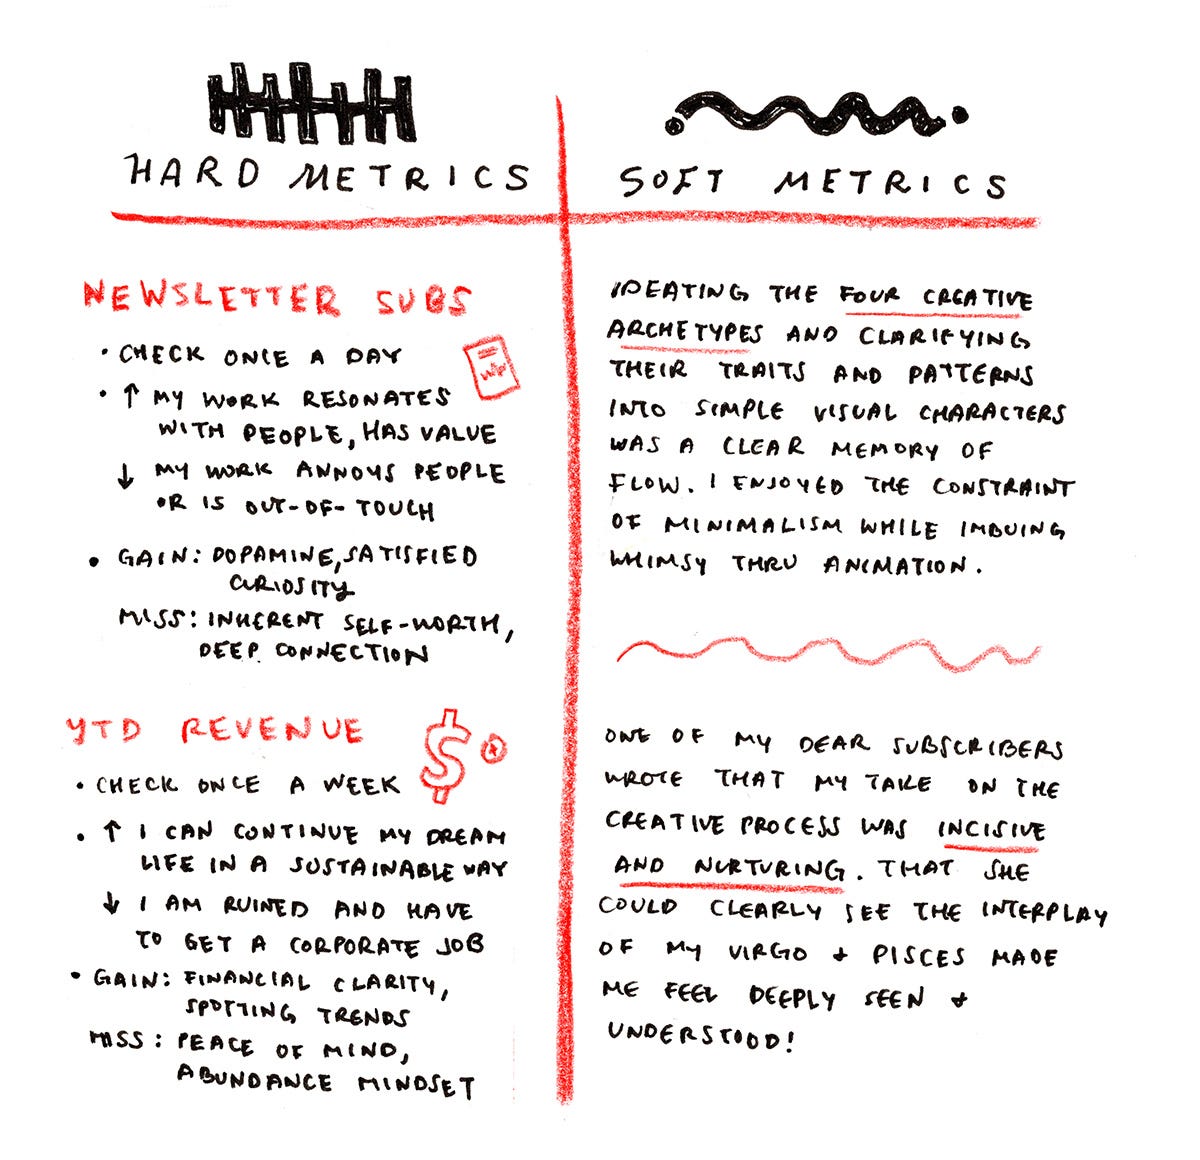 HARD METRICS
NEWSLETTER SUBS
• CHECK ONCE A DAY
• ↑ MY WORK RESONATES
WITH PEOPLE, HAS VALUE
↓ MY WORK ANNOYS PEOPLE
OR IS OUT-OF-TOUCH
• GAIN: DOPAMINE, SATISFIED
CURIOSITY
MISS: INHERENT SELF-WORTH,
DEEP CONNECTION
WIP
YTD REVENUE
$
• CHECK ONCE A WEEK
• ↑ I CAN CONTINUE MY DREAM
LIFE IN A SUSTAINABLE WAY
↓ I AM RUINED AND HAVE
TO GET A CORPORATE JOB
• GAIN: FINANCIAL CLARITY,
SPOTTING TRENDS
MISS: PEACE OF MIND,
ABUNDANCE MINDSET
SOFT METRICS
IDEATING THE FOUR CREATIVE
ARCHETYPES AND CLARIFYING
THEIR TRAITS AND PATTERNS
INTO SIMPLE VISUAL CHARACTERS
WAS A CLEAR MEMORY OF
FLOW. I ENJOYED THE CONSTRAINT
OF MINIMALISM WHILE IMBUING
WHIMSY THRU ANIMATION.
ONE OF MY DEAR SUBSCRIBERS
WROTE THAT MY TAKE ON THE
CREATIVE PROCESS WAS INCISIVE
AND NURTURING. THAT SHE
COULD CLEARLY SEE THE INTERPLAY
OF MY VIRGO + PISCES MADE
ME FEEL DEEPLY SEEN +
UNDERSTOOD!